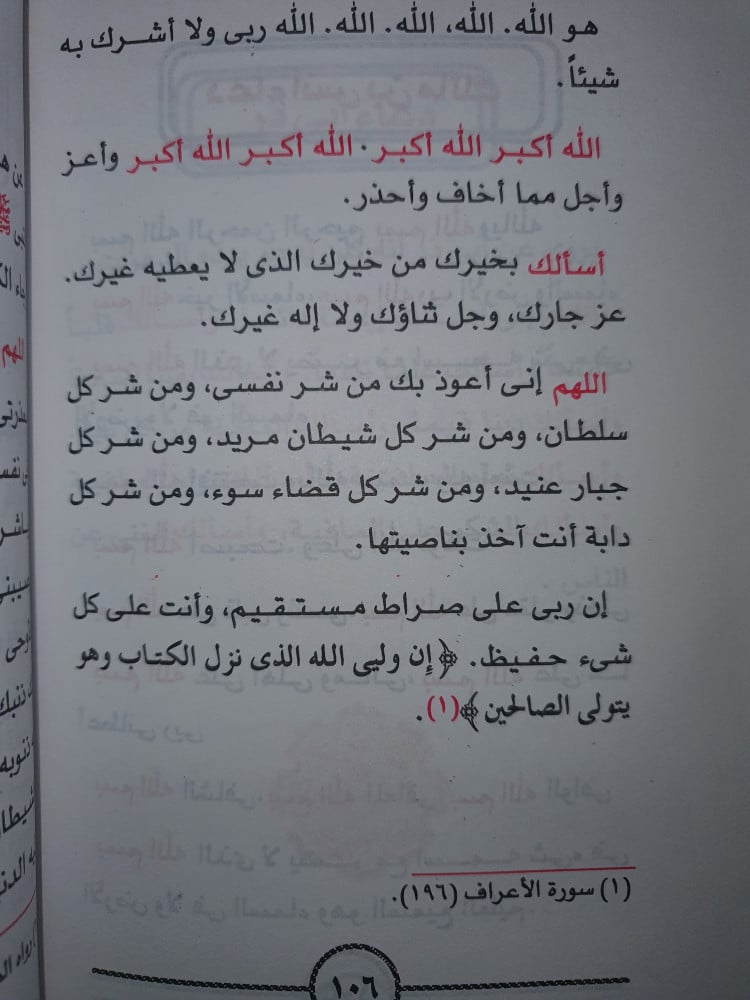 هو الله. الله، الله. الله. الله ربى ولا أشرك به
شيئاً.
الله أكبر الله أكبر. الله أكبر الله أكبر وأعز
وأجل مما أخاف وأحذر.
أسألك بخيرك من خيرك الذى لا يعطيه غيرك.
عز جارك، وجل ثناؤك ولا إله غيرك.
اللهم إنى أعوذ بك من شر نفسى، ومن شر كل
سلطان، ومن شر كل شيطان مريد، ومن شر كل
جبار عنيد، ومن شر كل قضاء سوء، ومن شر كل
دابة أنت آخذ بناصيتها.
إن ربى على صراط مستقيم، وأنت على كل
شىء حفيظ. ﴿إن وليى الله الذى نزل الكتاب وهو
يتولى الصالحين﴾(١).
(١) سورة الأعراف (١٩٦).
١٠٦